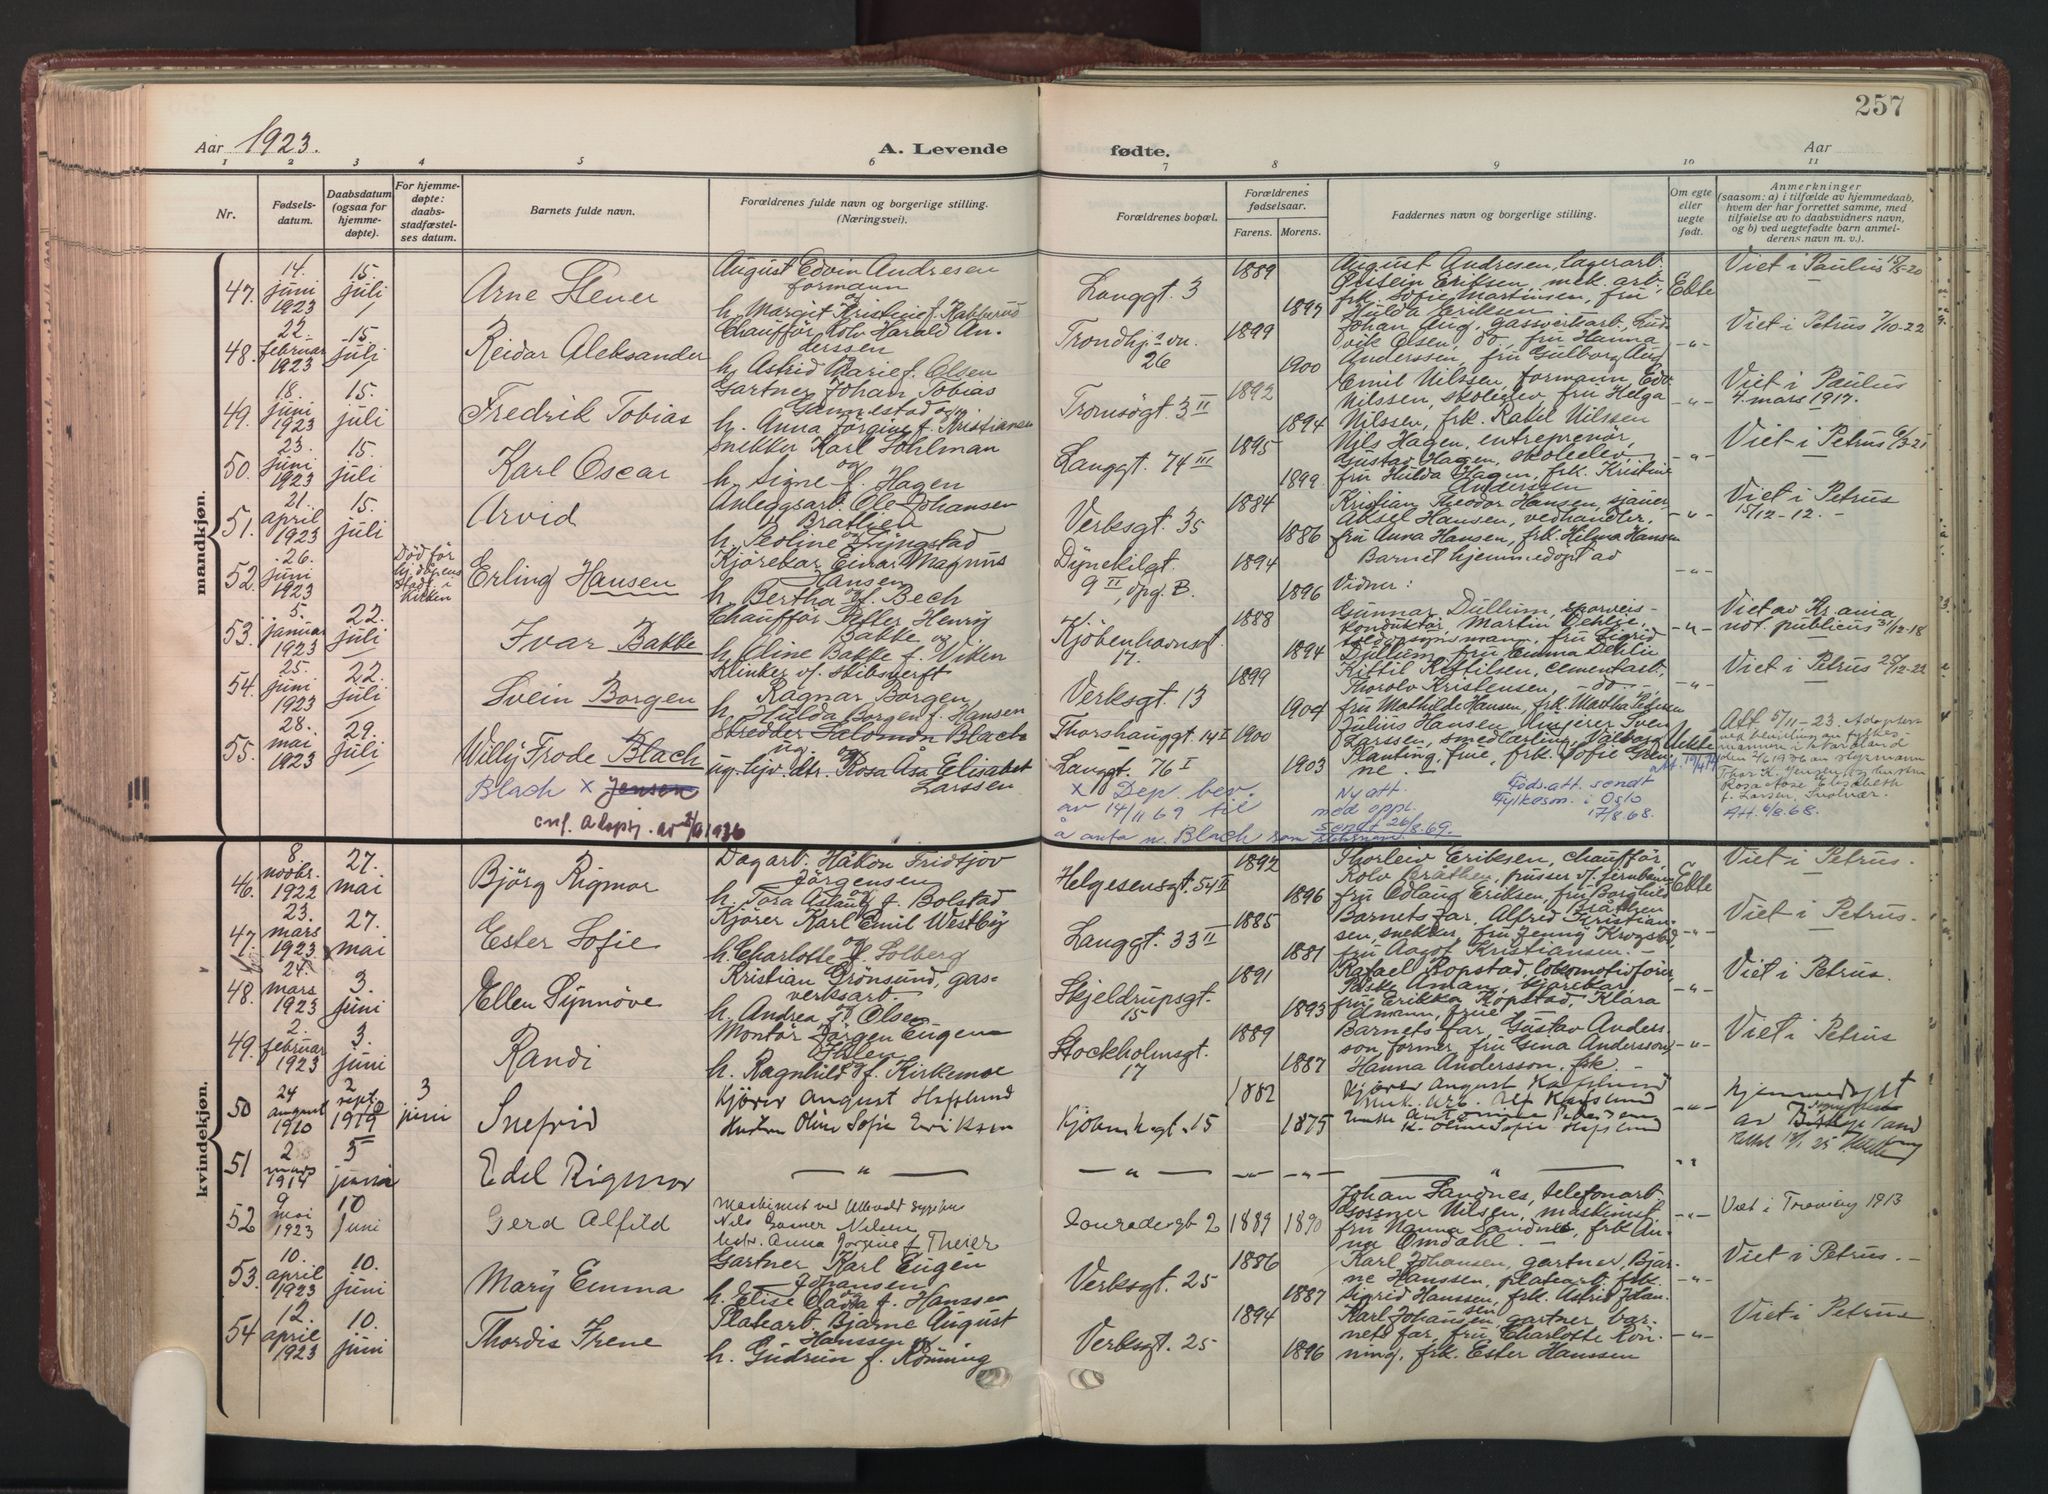 257
Aar 1923.
A. Levende
fødte.
Aar
1 2 3 4 5 6 7 8 9 10 11
Nr.
Fødsels-
datum.
Daabsdatum
(ogsaa for
hjemme-
døpte).
For hjemme-
døpte:
daabs-
stadfæstel-
ses datum.
Barnets fulde navn.
Forældrenes fulde navn og borgerlige stilling.
(Næringsvei).
Forældrenes bopæl.
Forældrenes
fødselsaar.
Farens. Morens.
Faddernes navn og borgerlige stilling.
Om egte
eller
uegte
født.
Anmerkninger
(saasom: a) i tilfælde av hjemmedaab,
hvem der har forrettet samme, med
tilføielse av to daabsvidners navn,
og b) ved uegtefødte barn anmel-
derens navn m. v.).
mandkjøn.
47.
14.
juni
1923
15.
juli
Arne Stener
August Edvin Andresen
formann
og
h. Margit Kristine f. Kabberud
Langgt. 3
1889
1897
August Andresen, lagerarb.
Øistein Eriksen, mek. arb.,
frk. Sofie Martinsen, fru
Hulda Eriksen
Ekte
Viet i Paulus
48.
22.
februar
1923
15.
juli
Reidar Aleksander
Chauffør Rolv Harald An-
derssen
h. Astrid Marie f. Olsen
Trondhj.vn.
26
1899
1900
Johan Aug. gassverksarb. Lud-
vik Olsen, do, fru Hanna
Anderssen, fru Gulborg Aug.
Viet i Petrus 7/10-22
49.
18.
juni
1923
15.
juli
Fredrik Tobias
Gartner Johan Tobias
Gannestad og
h. Anna Jørgine f. Kristiansen
Tromsøgt. 3 II
1892
1894
Emil Nilssen, formann Edv.
Nilssen, skoleelev, fru Helga
Nilssen, frk. Rakel Nilssen
Viet i Paulus
4. mars 1917.
50.
23.
juni
1923
15.
juli
Karl Oscar
Snekker Karl Sohlman
og
h. Signe f. Hagen
Langgt. 74 III
1895
1899
Nils Hagen, entreprenør,
Gustav Hagen, skoleelev,
fru Hilda Hagen, frk. Kristine
Anderssen
Viet i Petrus 6/3-21
51.
21.
april
1923
15.
juli
Arvid
Anleggsarb. Ole Johansen
Bratlien
og
h. Teoline f. Lyngstad
Verksgt. 35
1884
1886
Kristian Theodor Hansen, sjauer
Aksel Hansen, vedhandler,
fru Anna Hansen, frk. Hilma Hansen
Viet i Petrus
15/12-12.
52.
26.
juni
1923
Død før
hj. dåpens
Stadf. i
Kirken
Erling Hansen
Kjørekar Einar Magnus
Hansen
og
h. Bertha f. Bech
Dynekilgt.
9 II, opg. B.
1894
1896
Barnet hjemmedøpt av
Vidner:
53.
5.
januar
1923
22.
juli
Ivar Bakke
Chauffør Petter Henry
Bakke og
h. Aline Bakke f. Viken
Kjøbenhavnsgt.
17.
1888
1894
Gunnar Dullum, sporveis-
konduktør, Martin Dehlie,
fru Sigrid
Dullum, fru Emma Dehlie
Viet av Kr.ania
not. publicus 31/12-18
54.
25.
juni
1923
22.
juli
Svein Borgen
Klinker v/ Skibsverft
Ragnar Borgen
h. Hulda Borgen f. Hansen
Verksgt. 13
1899
1904
Kittil Kittilsen, cementarb.
Thorolv Kristensen, do.
fru Mathilde Hansen, frk. Martha Pedersen
Viet i Petrus
55.
28.
mai
1923
29.
juli
Willy Frode Blach
Blach x Jensen
cnf. Adopsj. av
Skredder Salomon Blach
og
ug. sjv. dtr. Rosa Åsa Elisabet
Larssen
Thorshauggt. 14 II
Langgt. 76 I
1900
1903
Julius Hansen, Sven
Larssen, smedlærling, Valborg
Planting, frue, frk. Sofie Gre-
ne.
Uekte
Att 5/11-23. Adoptert
ved bevilling av fylkes-
mannen i Nordland
den 2/6 1936 av styrmann
Thor K. Jensen og hustru
Rosa Aase Elisabeth
f. Larsen, Svolvær.
Att. 6/8.68.
x Dep. bev.
av 14/11 69 til
å anta n. Blach som slektsnavn.
Ny att.
med oppl.
sendt 26/8.69.
Føds.att. sendt
Fylkesm. i Oslo
17/8.68.
kvindekjøn.
46.
8
novbr.
1922
27.
mai
Bjørg Rigmor
Dagarb. Håkon Fridtjov
Jørgensen
og
h. Tora Aslaug f. Bolstad
Helgesensgt. 54 II
1892
1896
Thorleiv Eriksen, chauffør,
Rolv Bråthen, pusser v/ jernbanen
fru Odlaug Eriksen, fru Borghild
Bråthen
Ekte
Viet i Petrus.
47.
23.
mars
1923
27.
mai
Ester Sofie
Kjører Karl Emil Westby
og
h. Charlotte f. Solberg
Langgt. 33 II
1885
1881
Barnets far, Alfred Kristian-
sen, snekker, fru Jenny Krogstad,
fru Aagot Kristiansen.
Viet i Petrus.
48.
24.
mars
1923
3.
juni
Ellen Synnøve
Kristian Grønsund, gas-
verksarb.
h. Andrea f. Olsen
Skjeldrupsgt.
15
1891
1893
Rafael Ropstad, lokomotivfører,
Aman, kjørekar,
fru Erikka Ropstad, Klara
Edmann, frue
Viet i Petrus.
49.
2.
februar
1923
3.
juni
Randi
Montør Jørgen Eugen
Holen
h. Ragnhild f. Kirkemoe
Stockholmsgt.
17
1889
1887
Barnets far, Gustav Anders-
son, former, fru Gina Andersson,
Hanna Andersson, frk.
Viet i Petrus
50
24
august
1910
2
sept.
3
juni
Snefrid
Kjører August Hafslund
Hustru Oline Sofie Eriksen
Kjøbenh.gt. 15
1882
1875
Kjører August Hafslund
h. Oline Sofie Hafslund
hjemmedøpt
av
51
2
mars
1914
5
juni
Edel Rigmor
— „ —
— „ —
52
9
mai
1923
10
juni
Gerd Alfild
Maskinist ved Ullevål sykehus
Nils Gosner Nilsen
hustr. Anna Jørgine f. Theier
2
1889
1890
Johan Sandnes, telefonarb.
Gossner Nilsen, maskinist
fru Nanna Sandnes, frk An-
na Omdahl.
Viet i Tromøy 1913
53.
10.
april
1923
10.
juni
Mary Emma
Gartner Karl Eugen
Johansen
og
h. Elise f. Hanssen
Verksgt. 25
1886
1887
Karl Johansen, gartner, Bjar-
ne Hanssen, platearb. frk.
Sigrid Hanssen, frk. Astrid Johan-
sen
Viet i Petrus.
54
12.
april
1923
10.
juni
Thordis Irene
Platearb. Bjarne August
Hanssen og
h. Gudrun f. Rønning
Verksgt. 25
1894
1896
Karl Johansen, gartner, bar-
nets far, fru Charlotte Røn-
ning, frk. Ester Hanssen
Viet i Petrus